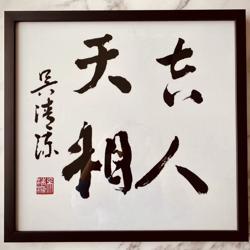 吉人
天相
吴清源